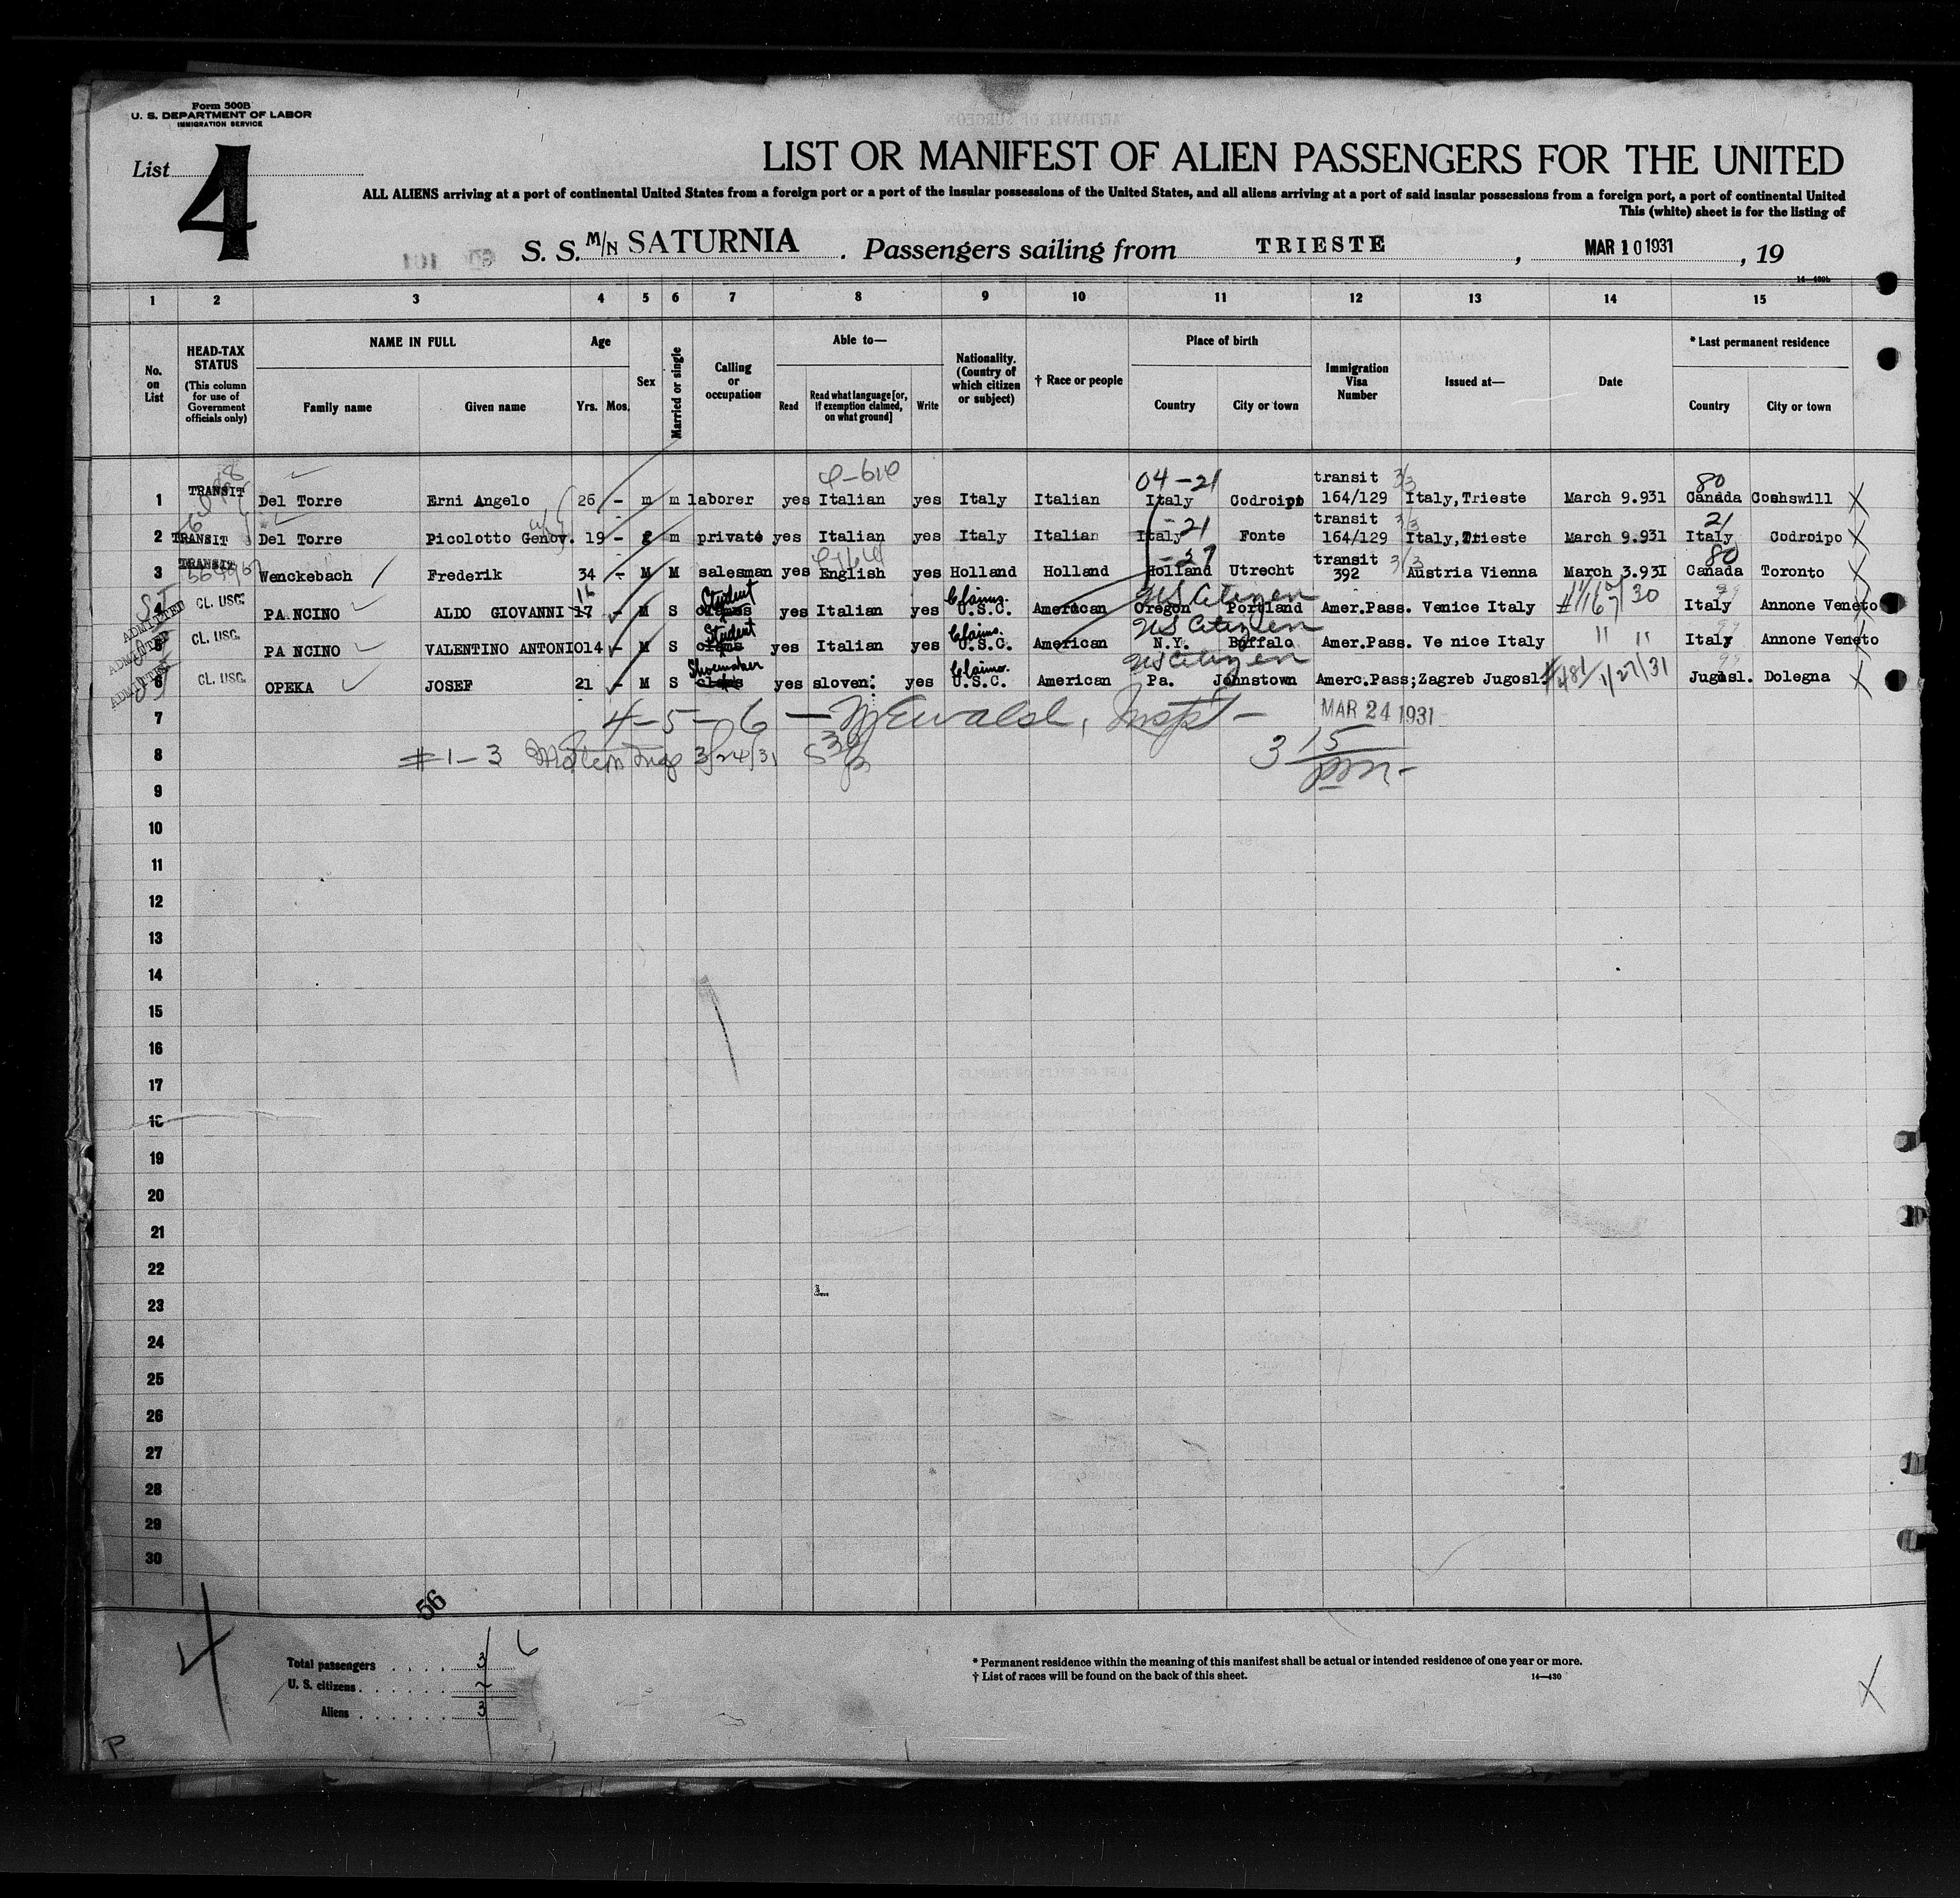 Form 500B
U. S. DEPARTMENT OF LABOR
IMMIGRATION SERVICE
List 4
LIST OR MANIFEST OF ALIEN PASSENGERS FOR THE UNITED
ALL ALIENS arriving at a port of continental United States from a foreign port or a port of the insular possessions of the United States, and all aliens arriving at a port of said insular possessions from a foreign port, a port of continental United
This (white) sheet is for the listing of
S. S. M/N SATURNIA. Passengers sailing from TRIESTE, MAR 10 1931, 19
14—430b
1 2 3 4 5 6 7 8 9 10 11 12 13 14 15
No. on List
HEAD-TAX STATUS (This column for use of Government officials only)
NAME IN FULL
Family name Given name
Age
Yrs. Mos.
Sex
Married or single
Calling or occupation
Able to—
Read Read what language [or, if exemption claimed, on what ground] Write
Nationality. (Country of which citizen or subject)
† Race or people
Place of birth
Country City or town
Immigration Visa Number
Issued at—
Date
* Last permanent residence
Country City or town
04-21 transit 3/3 80
1 TRANSIT Del Torre Erni Angelo 26 - m m laborer yes Italian yes Italy Italian Italy Codroipo 164/129 Italy,Trieste March 9.931 Canada Coshswill X
-21 transit 3/3 21
2 TRANSIT Del Torre Picolotto Genov. 19 - f m private yes Italian yes Italy Italian Italy Fonte 164/129 Italy,Trieste March 9.931 Italy Codroipo X
-27 transit 80
3 TRANSIT Wenckebach Frederik 34 - M M salesman yes English yes Holland Holland Holland Utrecht 392 3/3 Austria Vienna March 3.931 Canada Toronto X
16 Student Claims. US Citizen
4 ADMITTED CL. USC. PANCINO ALDO GIOVANNI 17 - M S yes Italian yes U.S.C. American Oregon Portland Amer.Pass. Venice Italy Italy Annone Veneto
Student Claims. US Citizen
5 ADMITTED CL. USC. PANCINO VALENTINO ANTONIO 14 - M S yes Italian yes U.S.C. American N.Y. Buffalo Amer.Pass. Ve nice Italy " " Italy Annone Veneto
Shoemaker Claims. US Citizen
6 ADMITTED CL. USC. OPEKA JOSEF 21 - M S yes sloven: yes U.S.C. American Pa. Johnstown Amerc.Pass;Zagreb Jugosl. #481 1/27/31 Jugosl. Dolegna X
7 4-5-6 — Ewald, Insp't - MAR 24 1931
8 #1-3 3/24/31 3 15 pm-
9
10
11
12
13
14
15
16
17
18
19
20
21
22
23
24
25
26
27
28
29
30
56
4
Total passengers . . . . 3 6
U. S. citizens . . . . . .
Aliens . . . . . . 3
* Permanent residence within the meaning of this manifest shall be actual or intended residence of one year or more.
† List of races will be found on the back of this sheet.
14—430
X
P